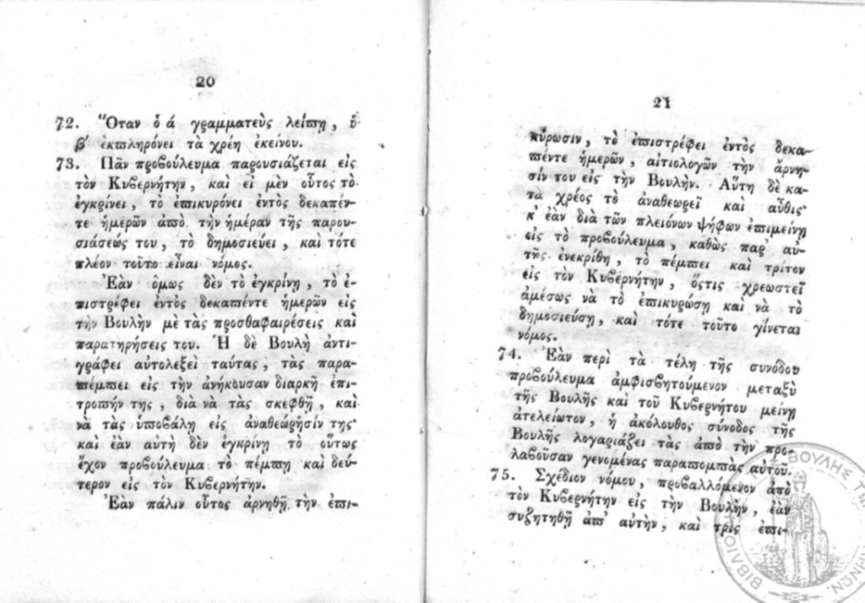 20
72. Ὅταν ὁ ά γραμματεὺς λείπῃ, ὁ
β′ ἐκπληρόνει τὰ χρέη ἐκείνου.
73. Πᾶν προβούλευμα παρουσιάζεται εἰς
τὸν Κυβερνήτην, καὶ εἰ μὲν οὗτος τὸ
ἐγκρίνει, τὸ ἐπικυρόνει ἐντὸς δεκαπέν-
τε ἡμερῶν ἀπὸ τὴν ἡμέραν τῆς παρου-
σιάσεώς του, τὸ δημοσιεύει, καὶ τότε
πλέον τοῦτο εἶναι νόμος.
Ἐὰν ὅμως δὲν τὸ ἐγκρίνῃ, τὸ ἐ-
πιστρέφει ἐντὸς δεκαπέντε ἡμερῶν εἰς
τὴν Βουλὴν μὲ τὰς προσθαφαιρέσεις καὶ
παρατηρήσεις του. Ἡ δὲ Βουλὴ ἀντι-
γράφει αὐτολεξεὶ ταύτας, τὰς παρα-
πέμπει εἰς τὴν ἀνήκουσαν διαρκῆ ἐπι-
τροπήν της, διὰ νὰ τὰς σκεφθῇ, καὶ
νὰ τὰς ὑποβάλῃ εἰς ἀναθεώρησίν της·
καὶ ἐὰν αὐτὴ δὲν ἐγκρίνῃ τὸ οὕτως
ἔχον προβούλευμα τὸ πέμπῃ καὶ δεύ-
τερον εἰς τὸν Κυβερνήτην.
Ἐὰν πάλιν οὗτος ἀρνηθῇ τὴν ἐπι-
21
κύρωσιν, τὸ ἐπιστρέφει ἐντὸς δεκα-
πέντε ἡμερῶν, αἰτιολογῶν τὴν ἄρνη-
σίν του εἰς τὴν Βουλήν. Αὕτη δὲ κα-
τὰ χρέος τὸ ἀναθεωρεῖ καὶ αὖθις·
κ᾿ ἐὰν διὰ τῶν πλειόνων ψήφων ἐπιμείνῃ
εἰς τὸ προβούλευμα, καθὼς παρ᾿ αὐ-
τῆς ἐνεκρίθη, τὸ πέμπει καὶ τρίτον
εἰς τὸν Κυβερνήτην, ὅστις χρεωστεῖ
ἀμέσως νὰ τὸ ἐπικυρώσῃ καὶ νὰ τὸ
δημοσιεύσῃ, καὶ τότε τοῦτο γίνεται
νόμος.
74. Ἐὰν περὶ τὰ τέλη τῆς συνόδου
προβούλευμα ἀμφισβητούμενον μεταξὺ
τῆς Βουλῆς καὶ τοῦ Κυβερνήτου μείνῃ
ἀτελείωτον, ἡ ἀκόλουθος σύνοδος τῆς
Βουλῆς λογαριάζει τὰς ἀπὸ τὴν προ-
λαβοῦσαν γενομένας παραπομπὰς αὐτοῦ.
75. Σχέδιον νόμου, προβαλλόμενον ἀπὸ
τὸν Κυβερνήτην εἰς τὴν Βουλὴν, ἐὰν
συζητηθῇ ἀπ᾿ αὐτὴν, καὶ τρὶς ἐπι-